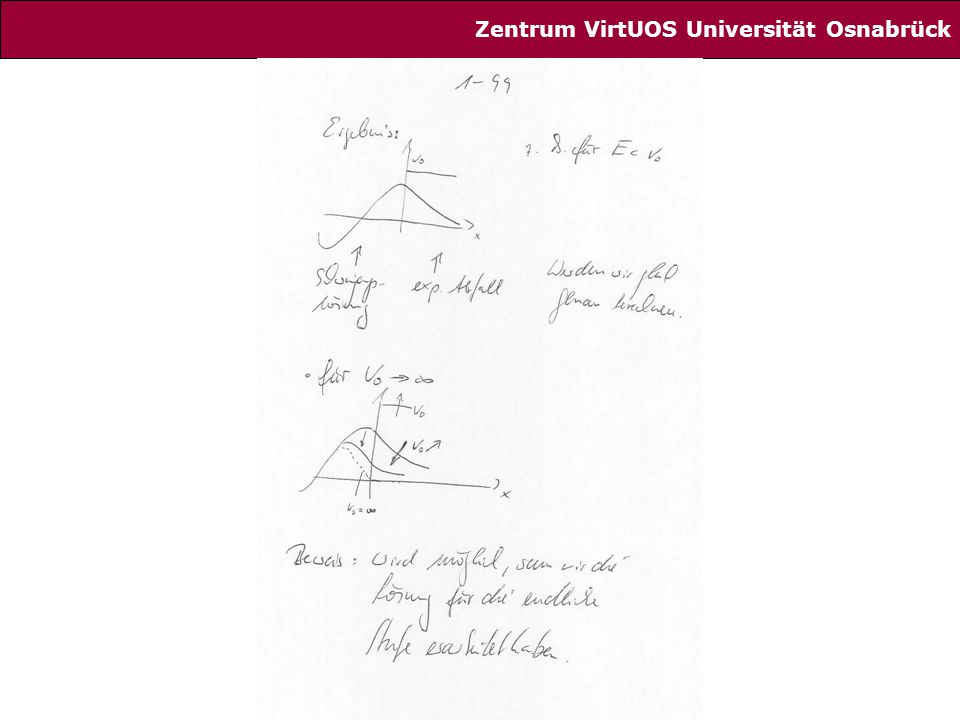 Zentrum VirtUOS Universität Osnabrück
1-99
Ergebnis:
z. B. für E < V₀
V₀
x
Schwingungs-
lösung
exp. Abfall
Werden wir gleich
genau berechnen.
• für V₀ → ∞
V₀
V₀ ↗
x
V₀ = ∞
Beweis: wird möglich, wenn wir die
Lösung für die endliche
Stufe erarbeitet haben.